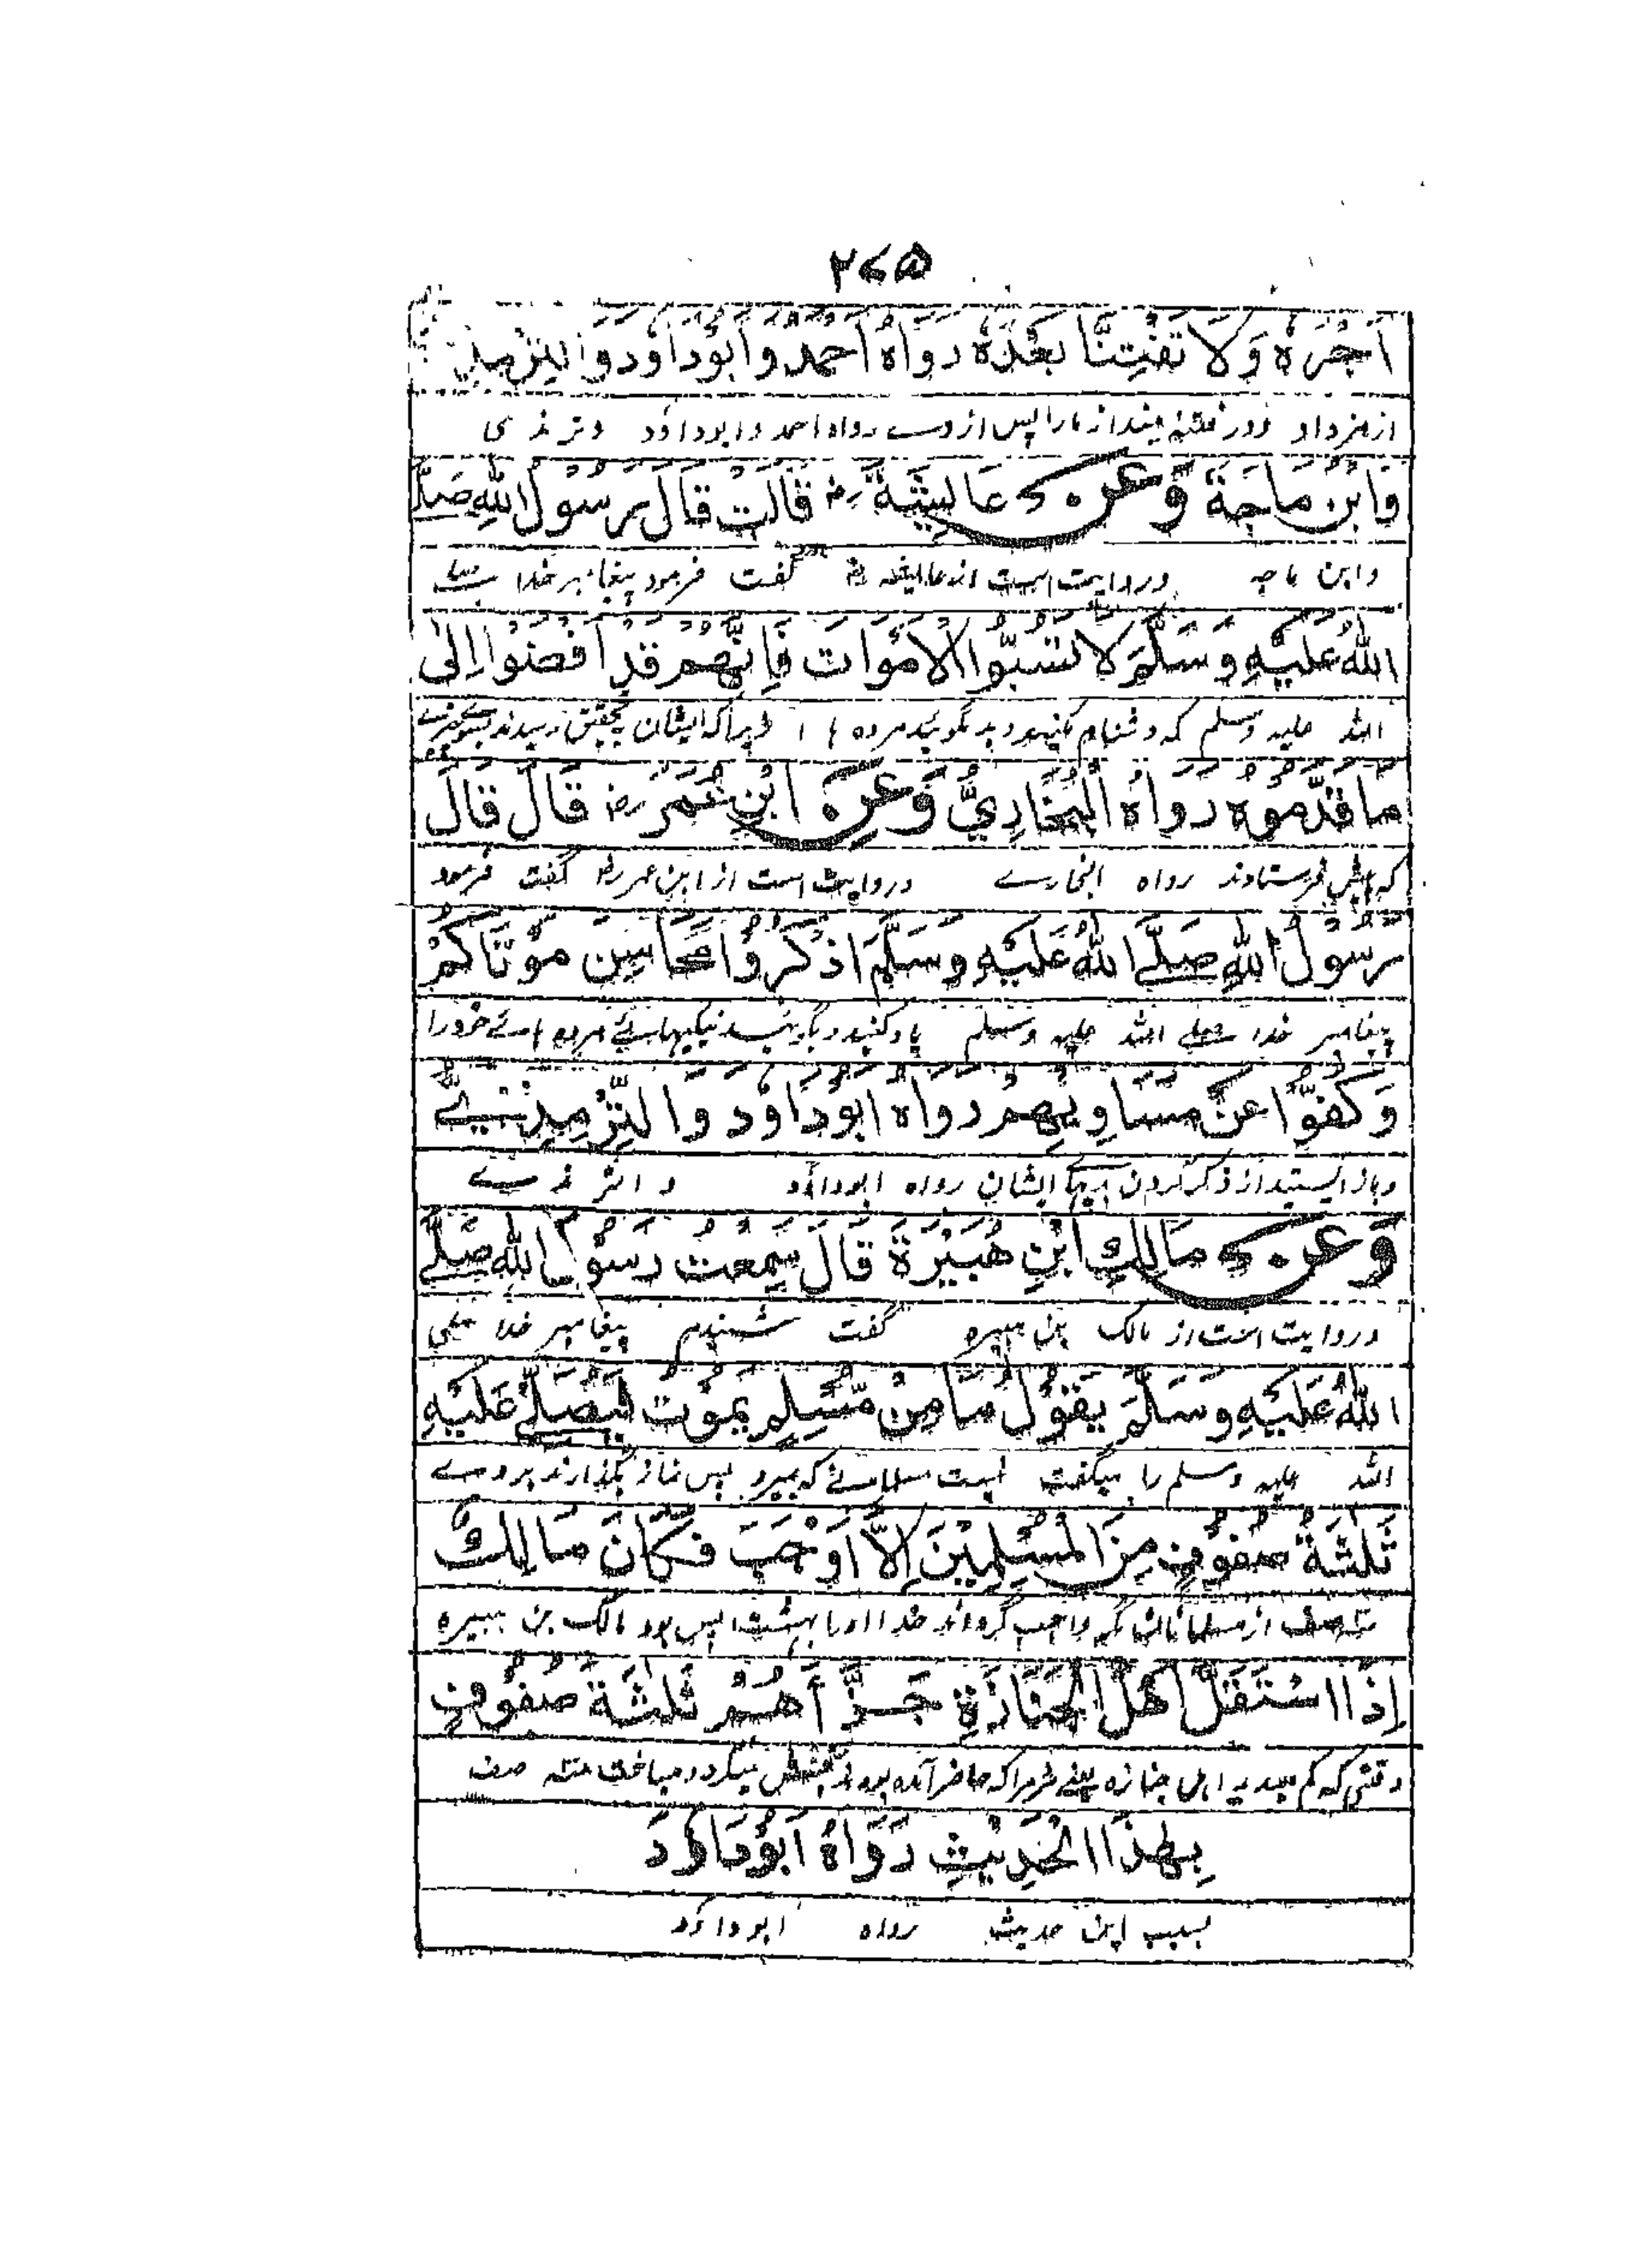 ۲۷۵
اَجْرَهٗ وَلَا تَفْتِنَّا بَعْدَهٗ رَوَاهُ اَحْمَدُ وَاَبُوْدَاوٗدَ وَالتِّرْمِذِيُّ
از مزد او و در فتنه مینداز مارا پس از وے رواه احمد و ابوداؤد و ترمذی
وَابْنُ مَاجَةَ وَعَنْ عَائِشَةَ رض قَالَتْ قَالَ رَسُوْلُ اللهِ صَلَّى
وابن ماجه وروایت است از عایشه رض گفت فرمود پیغامبر خدا صلے
اللهُ عَلَيْهِ وَسَلَّمَ لَا تَسُبُّوا الْاَمْوَاتَ فَاِنَّهُمْ قَدْ اَفْضَوْا اِلٰى
الله علیه وسلم که دشنام مکنید و بد مگوئید مرده را زیرا که ایشان بتحقیق رسیدند
مَا قَدَّمُوْهُ رَوَاهُ الْبُخَارِيُّ وَعَنِ ابْنِ عُمَرَ رض قَالَ قَالَ
که پیش فرستادند رواه البخارے وروایت است از ابن عمر رض گفت فرمود
رَسُوْلُ اللهِ صَلَّے اللهُ عَلَيْهِ وَسَلَّمَ اذْكُرُوْا مَحَاسِنَ مَوْتَاكُمْ
پیغامبر خدا صلے الله علیه وسلم یاد کنید و بگوئید نیکیهائے مرده هائے خود را
وَكُفُّوْا عَنْ مَسَاوِيْهِمْ رَوَاهُ اَبُوْدَاوٗدَ وَالتِّرْمِذِيُّ
وباز ایستید از ذکر کردن بدیهائے ایشان رواه ابوداؤد والترمذے
وَعَنْ مَالِكِ ابْنِ هُبَيْرَةَ قَالَ سَمِعْتُ رَسُوْلَ اللهِ صَلَّے
وروایت است از مالک بن هبیره گفت شنیدم پیغامبر خدا صلی
اللهُ عَلَيْهِ وَسَلَّمَ يَقُوْلُ مَا مِنْ مُّسْلِمٍ يَمُوْتُ فَيُصَلِّے عَلَيْهِ
الله علیه وسلم را میگفت نیست مسلمانے که بمیرد پس نماز بگذارند بر وے
ثَلٰثَةُ صُفُوْفٍ مِنَ الْمُسْلِمِيْنَ اِلَّا اَوْجَبَ فَكَانَ مَالِكٌ
سه صف از مسلمانان مگر واجب گرداند خدا او را بهشت پس بود مالک بن هبیره
اِذَا اسْتَقَلَّ اَهْلَ الْجَنَازَةِ جَزَّأَهُمْ ثَلٰثَةَ صُفُوْفٍ
وقتی که کم میدید اهل جنازه یعنے مردم را که حاضر آمده بودند میکرد و میساخت سه صف
بِهٰذَا الْحَدِيْثِ رَوَاهُ اَبُوْدَاوٗدَ
بسبب این حدیث رواه ابوداؤد